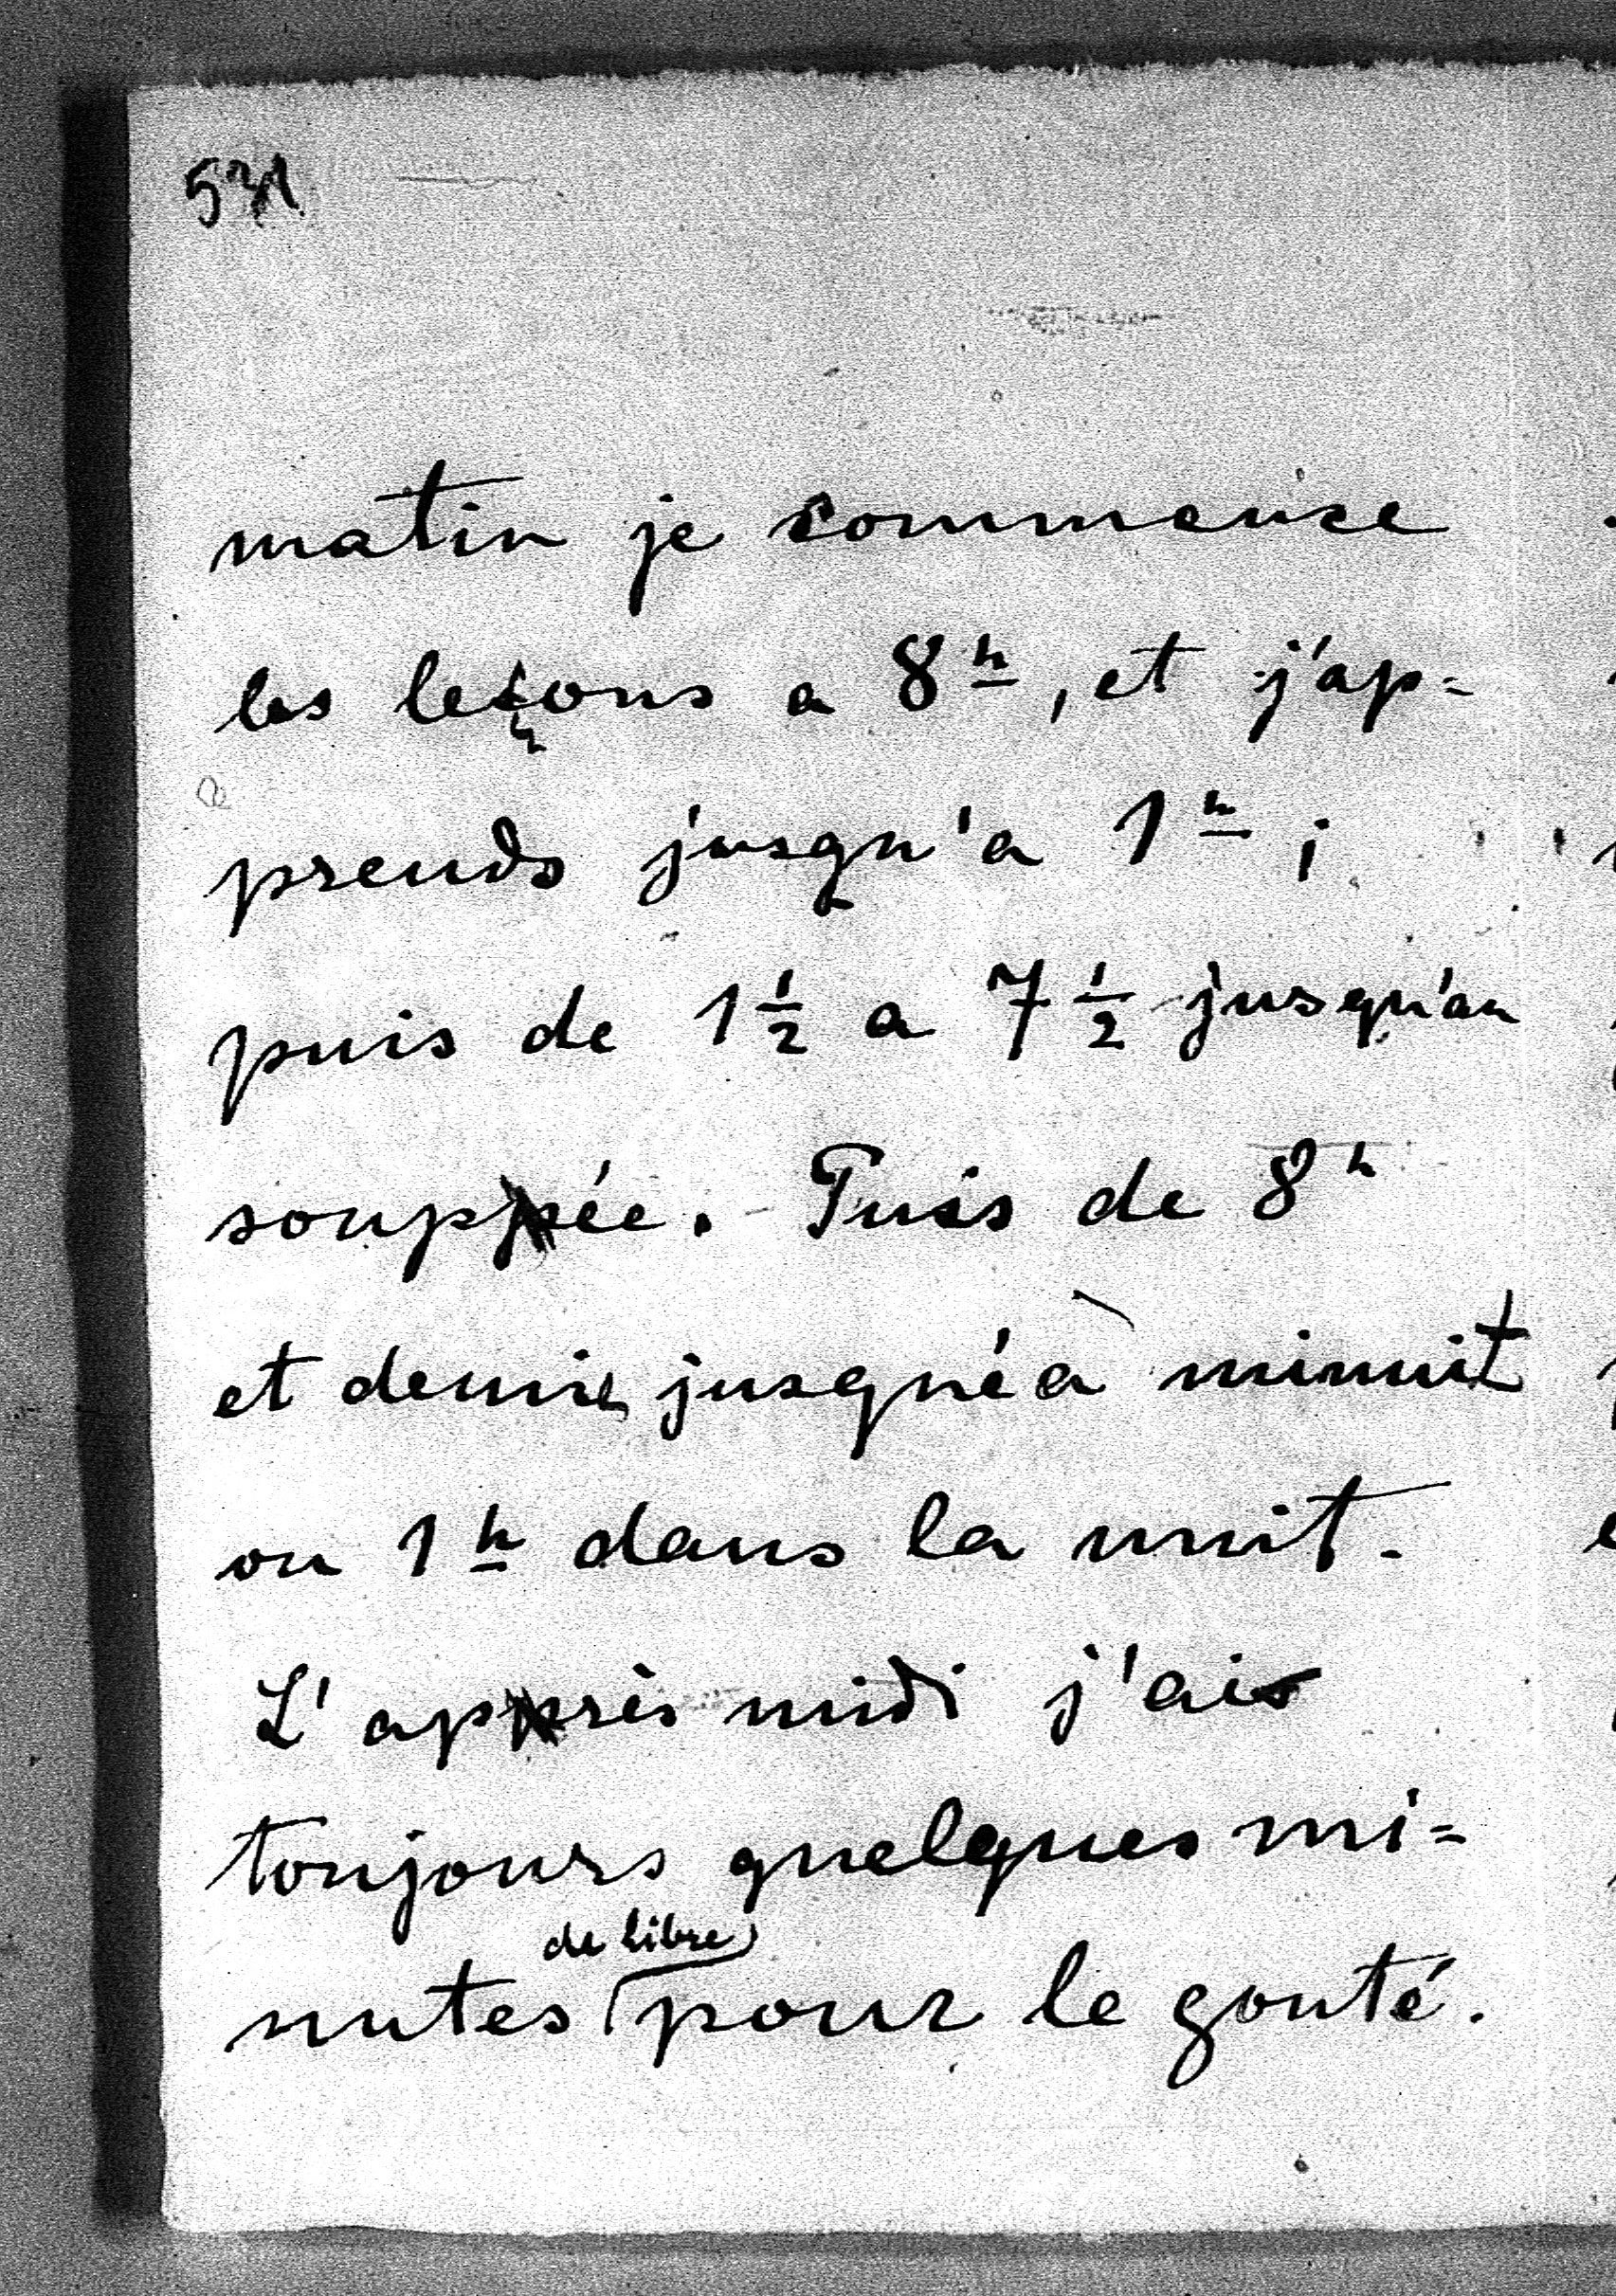 matin je commence
les leçons a 8h, et j'ap=
prends jusqu'a 1h ;
puis de 1 1/2 a 7 1/2 jusqu'au
soupée. - Puis de 8h
et demie jusque à minuit
ou 1h dans la nuit.
L'après midi j'ai
toujours quelques mi=
de libre
nutes pour le gouté.